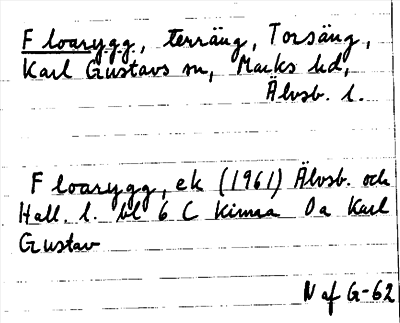 Floarygg, terräng, Torsäng,
Karl Gustavs sn, Marks hd,
Älvsb. l.
Floarygg, ek (1961) Älvsb. och
Hall. l. bl 6 C Kinna Oa Karl
Gustav
N af G-62